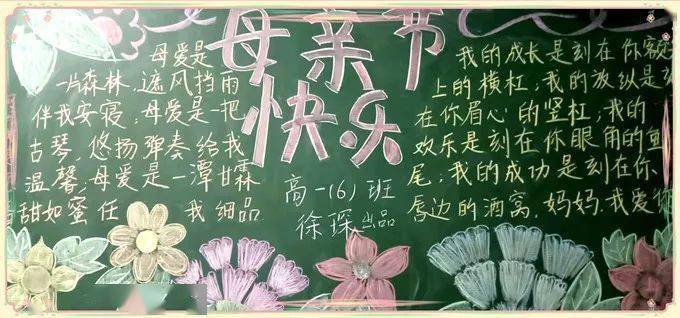 母亲节
快乐
母爱是
一片森林,遮风挡雨
伴我安寝;母爱是一把
古琴,悠扬弹奏给我
温馨;母爱是一潭甘霖
甜如蜜任 我细品
高一(6)班
徐琛出品
我的成长是刻在你额
上的横杠;我的放纵是
在你眉心的竖杠;我的
欢乐是刻在你眼角的鱼
尾;我的成功是刻在你
唇边的酒窝.妈妈,我爱你